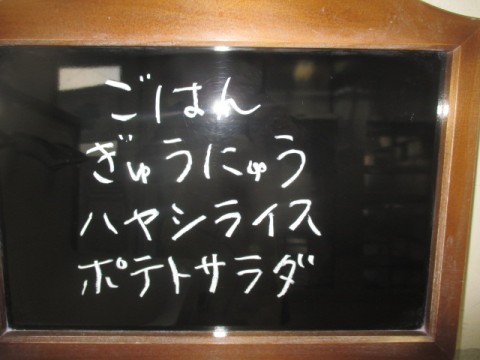 ごはん
ぎゅうにゅう
ハヤシライス
ポテトサラダ